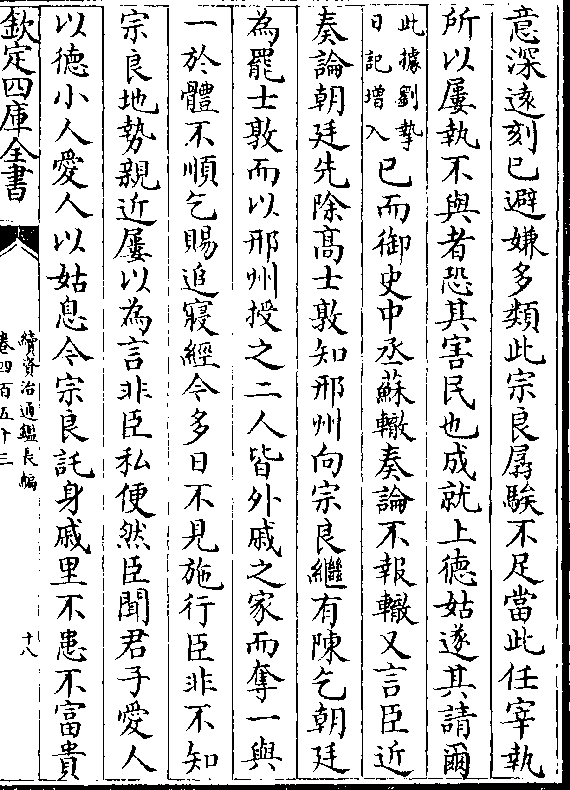 意深遠刻已避嫌多類此宗良孱騃不足當此任宰執
所以屢執不與者恐其害民也成就上徳姑遂其請爾
此據劉摯
日記増入
已而御史中丞蘇轍奏論不報轍又言臣近
奏論朝廷先除髙士敦知邢州向宗良繼有陳乞朝廷
為罷士敦而以邢州授之二人皆外戚之家而奪一與
一於體不順乞賜追寢經今多日不見施行臣非不知
宗良地勢親近屢以為言非臣私便然臣聞君子愛人
以徳小人愛人以姑息今宗良託身戚里不患不富貴
欽定四庫全書
續資治通鑑長編
卷四百五十三
十八